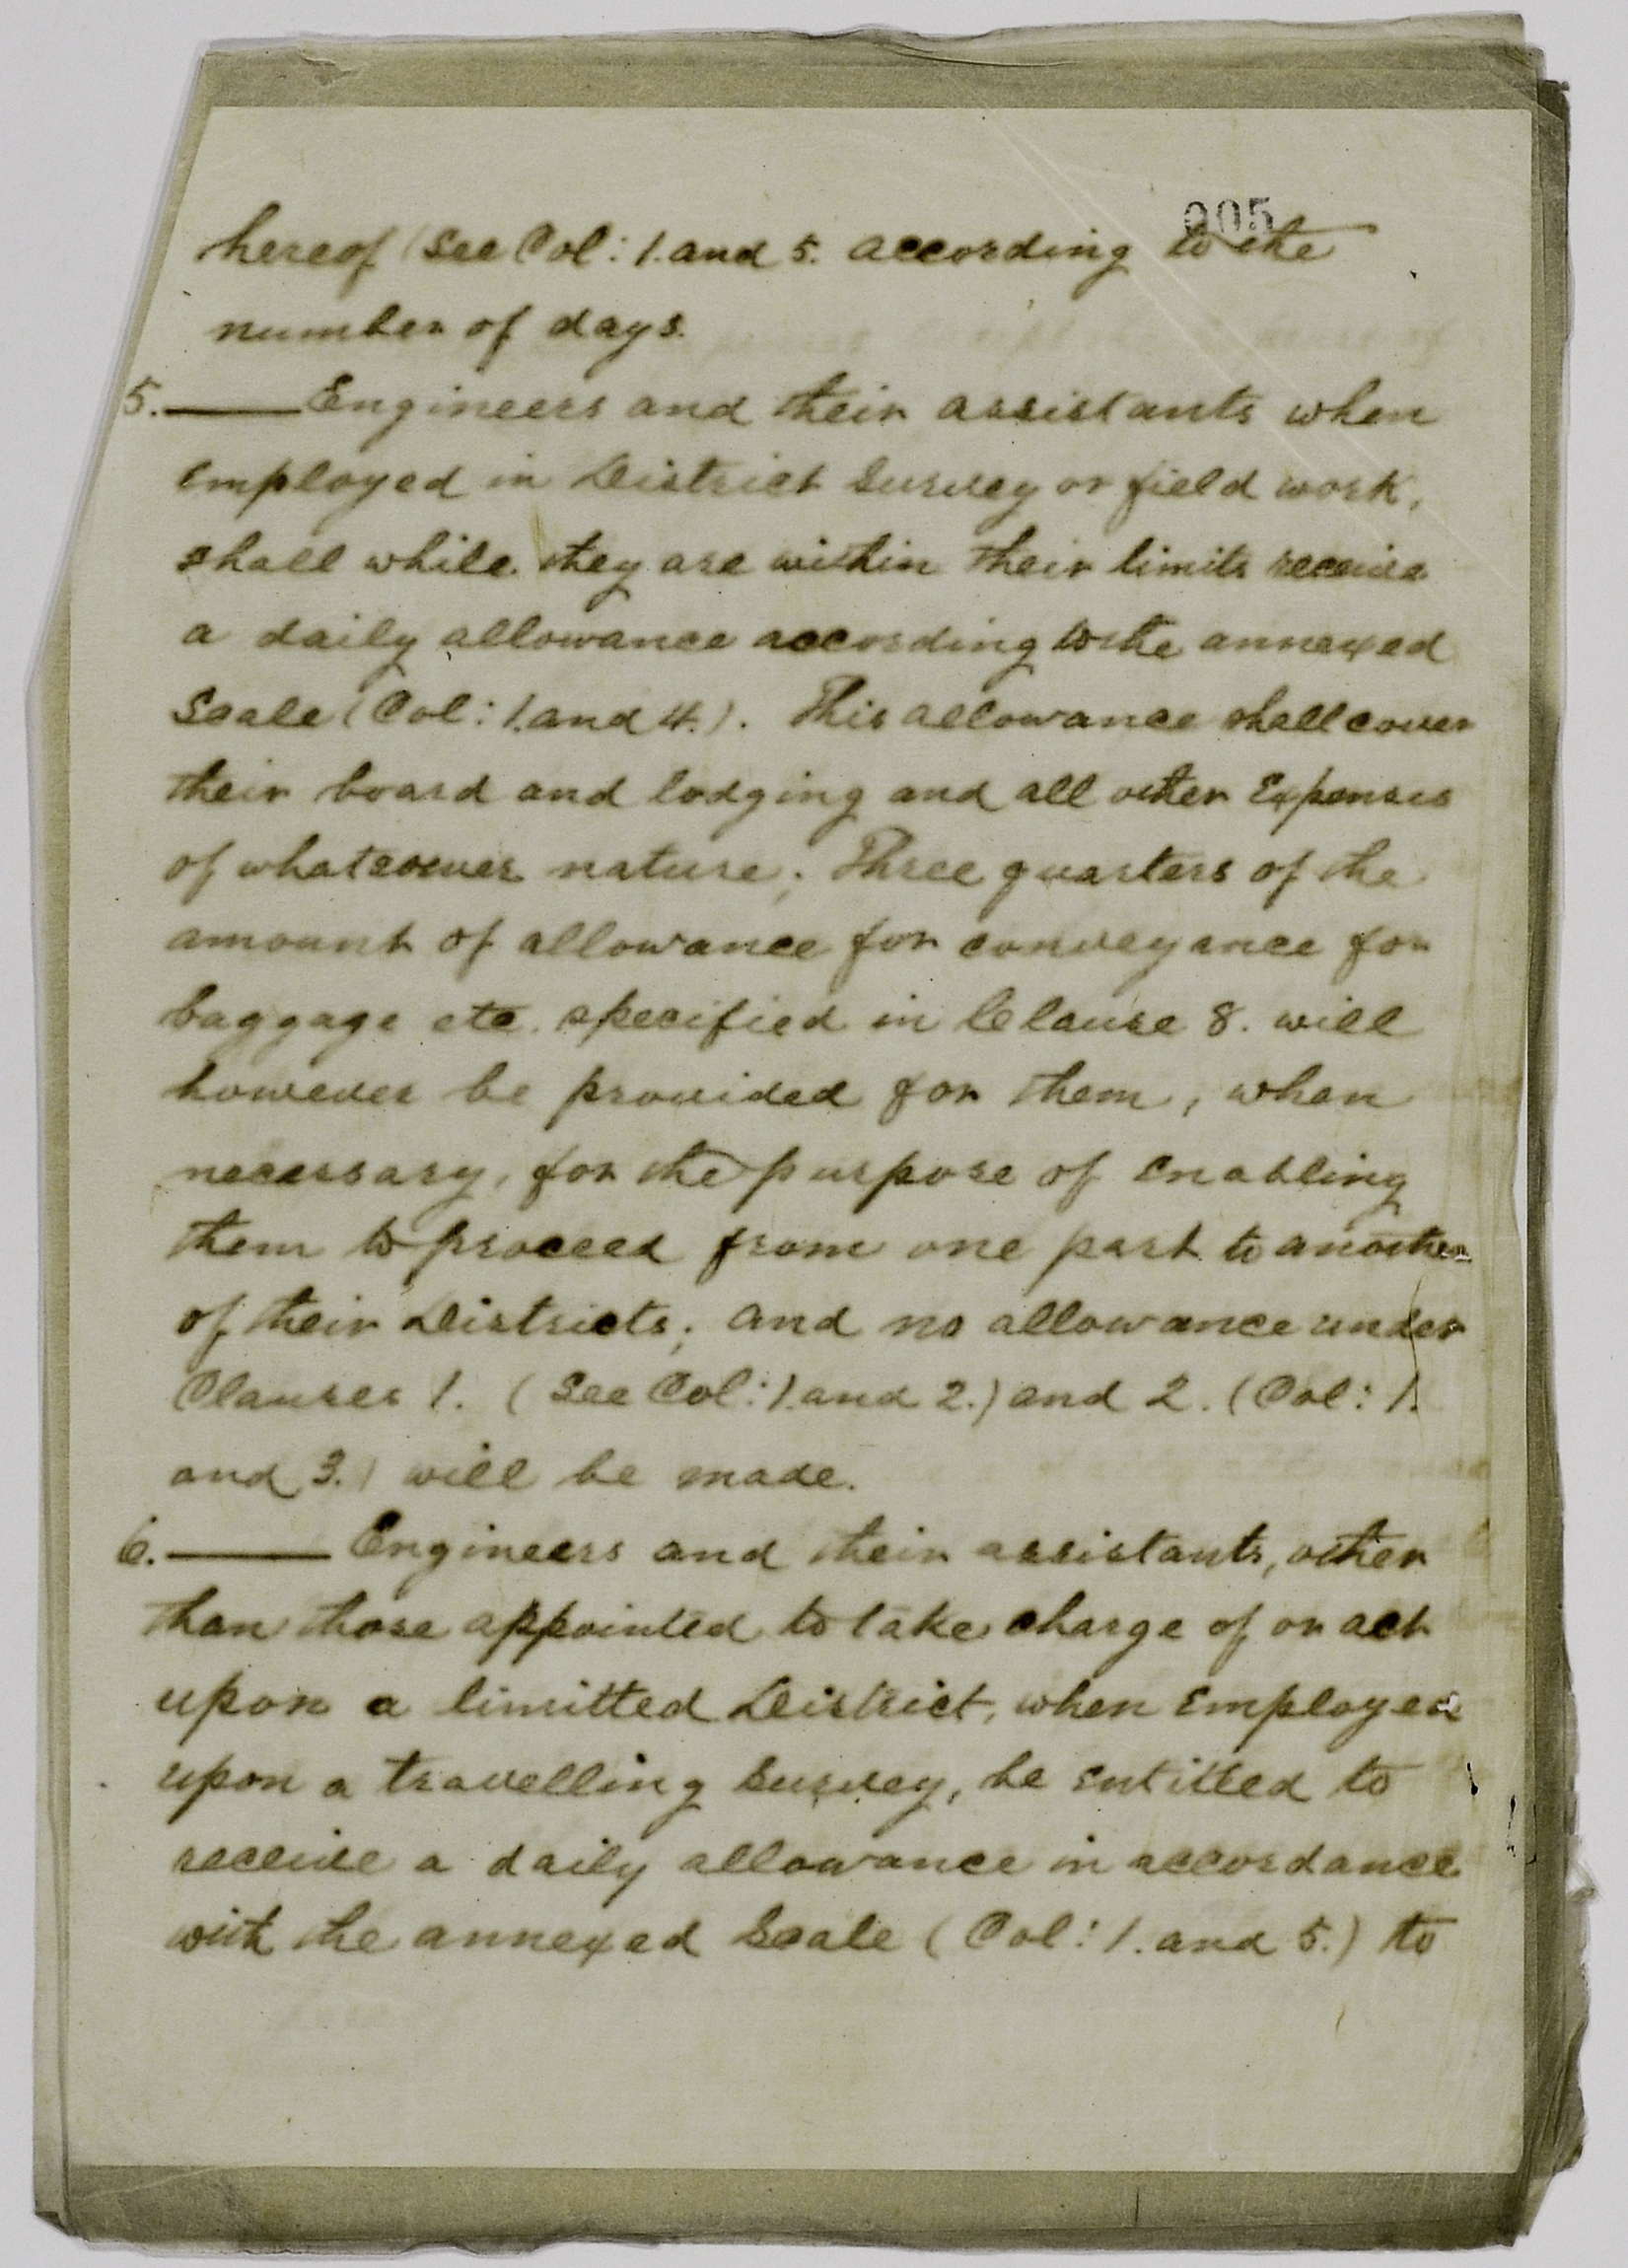 005
hereof (See Col: 1. and 5. according to the
number of days.
5. —— Engineers and their assistants when
employed in District Survey or field work,
shall while they are within their limits receive
a daily allowance according to the annexed
Scale (Col: 1. and 4.). This allowance shall cover
their board and lodging and all other Expenses
of whatsoever nature; Three quarters of the
amount of allowance for conveyance for
baggage etc. specified in Clause 8. will
however be provided for them, when
necessary, for the purpose of Enabling
them to proceed from one part to another
of their Districts; and no allowance under
Clauses 1. (See Col: 1. and 2.) and 2. (Col: 1.
and 3.) will be made.
6. —— Engineers and their assistants, other
than those appointed to take charge of or act
upon a limitted District, when Employed
upon a travelling Survey, be Entitled to
receive a daily allowance in accordance
with the annexed Scale (Col: 1. and 5.) to